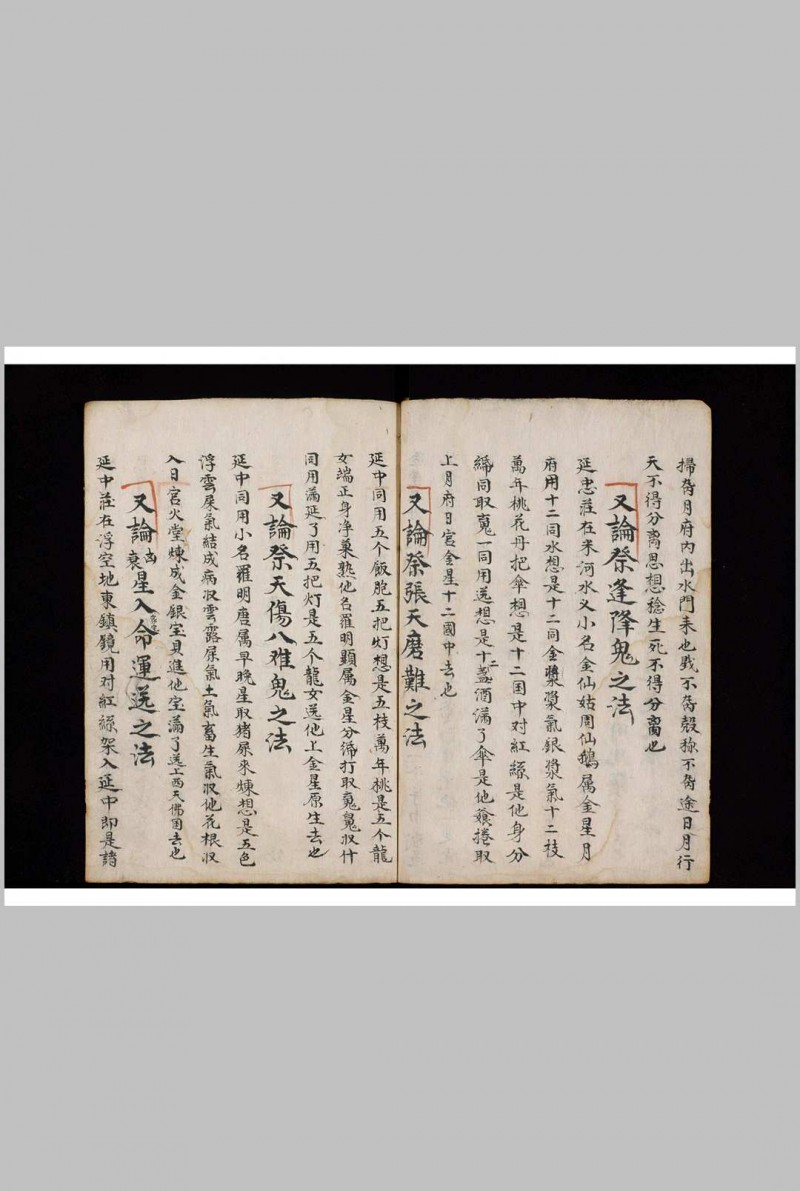 掃脅月府内出水門未也戥不脅殼稼不脅途日月行
天不得分离思想稔生死不得分离也
又論祭逢降鬼之法
延忠莊在米河水义小名金仙姑周仙鵝属金星月
府用十二同水想是十二同金漿漿氣銀漿氣十二枝
萬年桃花丹把傘想是十二国中对紅絲是他身分
締同取鬼一同用送想是十二盞酒满了傘是他飱捲取
上月府日宫金星十二國中去也
又論祭張天磨難之法
延中同用五个飯胞五把灯想是五枝萬年桃是五个龍
女端正身净菓熟他名羅明顯属金星分締打取鬼鬼収什
同用满延了用五把灯是五个龍女送他上金星原生去也
又論祭天傷八难鬼之法
延中同用小名羅明唐属早晚星取猪屎來煉想是五色
浮雲屎氣結成病収雲露屎氣土氣畜生氣収他花根収
入日宫火堂煉成金銀宝貝進他宝满了送上西天佛国去也
又論凶衰星入命運送之法
延中莊在浮空地東鎮鏡用对紅絲架入延中即是諸